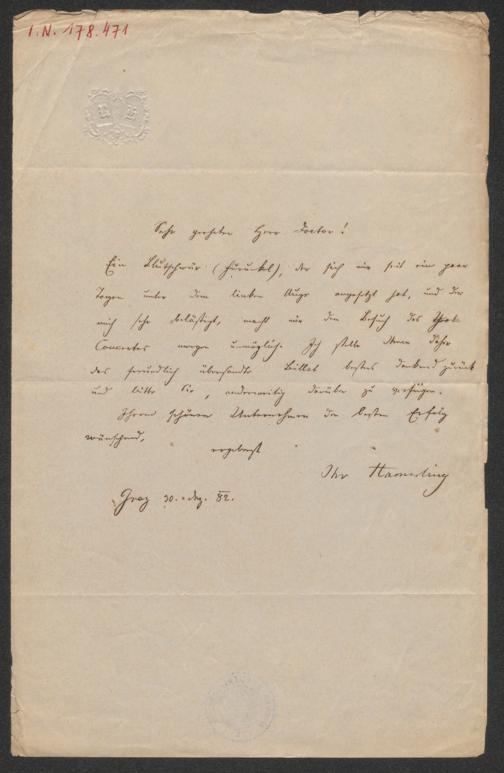 I.N. 178.471
Sehr geehrter Herr Doctor!
Ein Blutschwär (Furunkel), der sich mir seit ein paar
Tagen unter dem linken Auge angesetzt hat, und der
mich sehr belästigt, macht mir den Besuch des
Concertes morgen unmöglich. Ich stelle Ihnen daher
das freundlich übersandte Billet bestens dankend zurück
und bitte Sie, anderweitig darüber zu verfügen.
Ihrem schönen Unternehmen den besten Erfolg
wünschend,
ergebenst
Ihr Hamerling
Graz 30. Dez. 82.